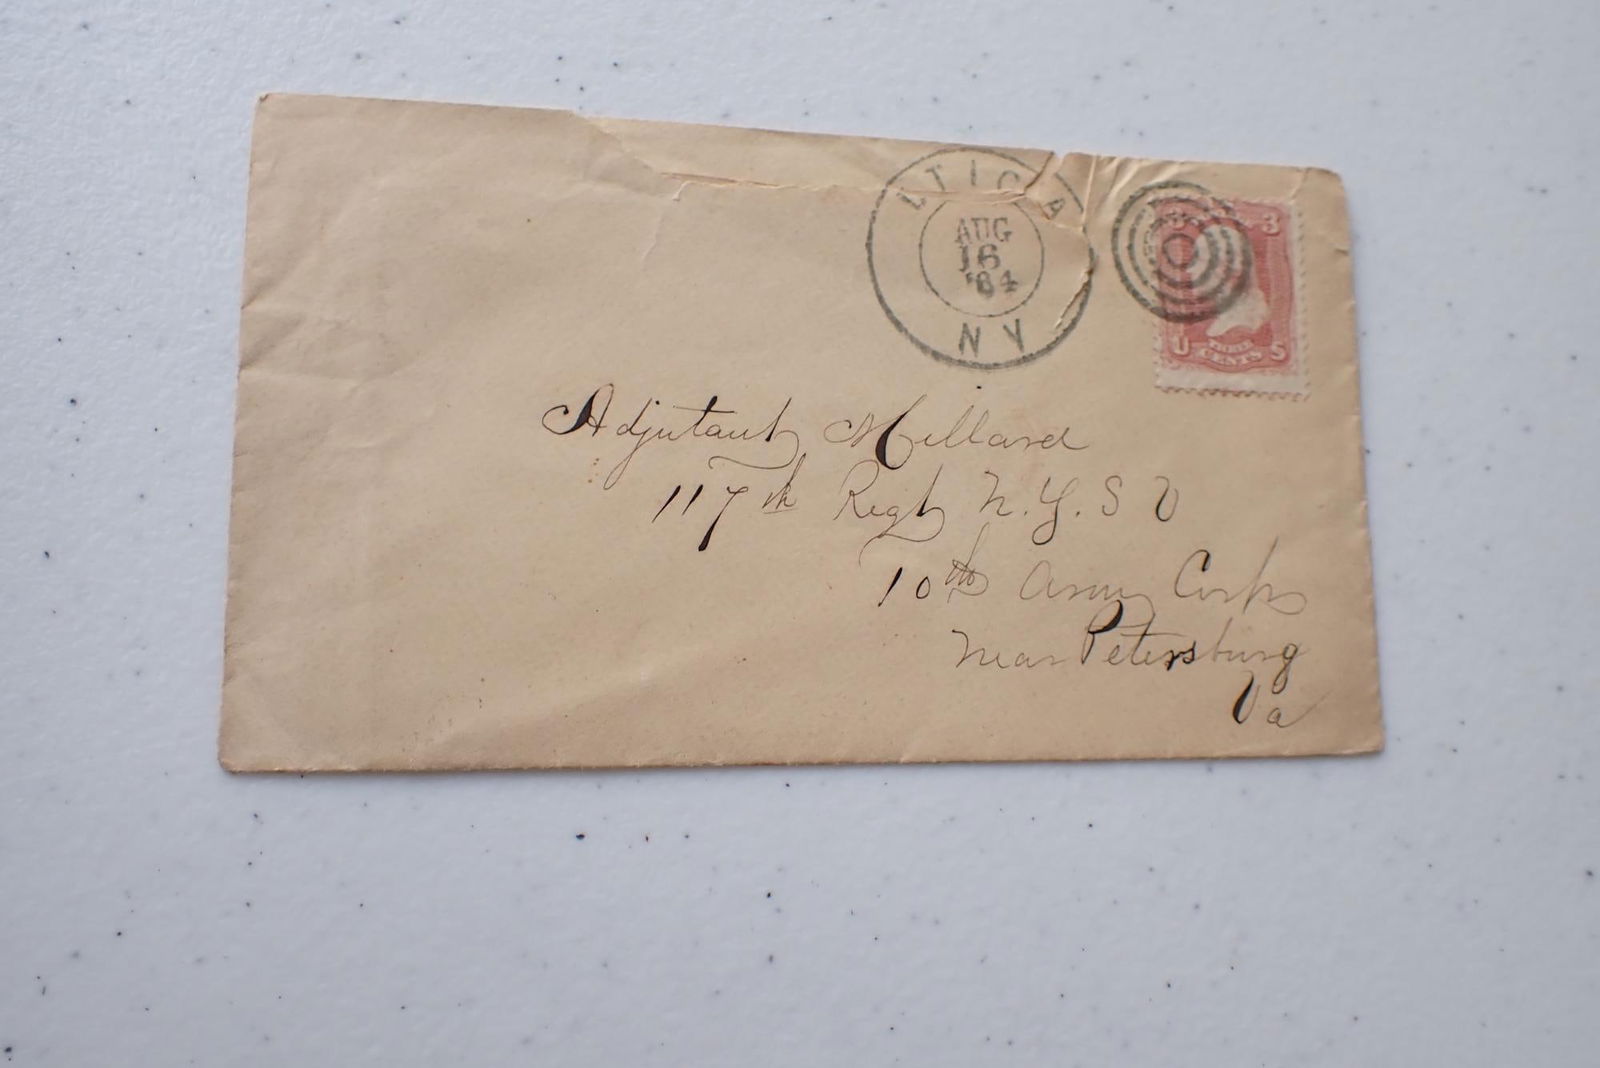 UTICA
AUG
16
'64
N Y
3
U THREE CENTS S
Adjutant Millard
117th Regt N.Y.S V
10th Army Corps
Near Petersburg
Va